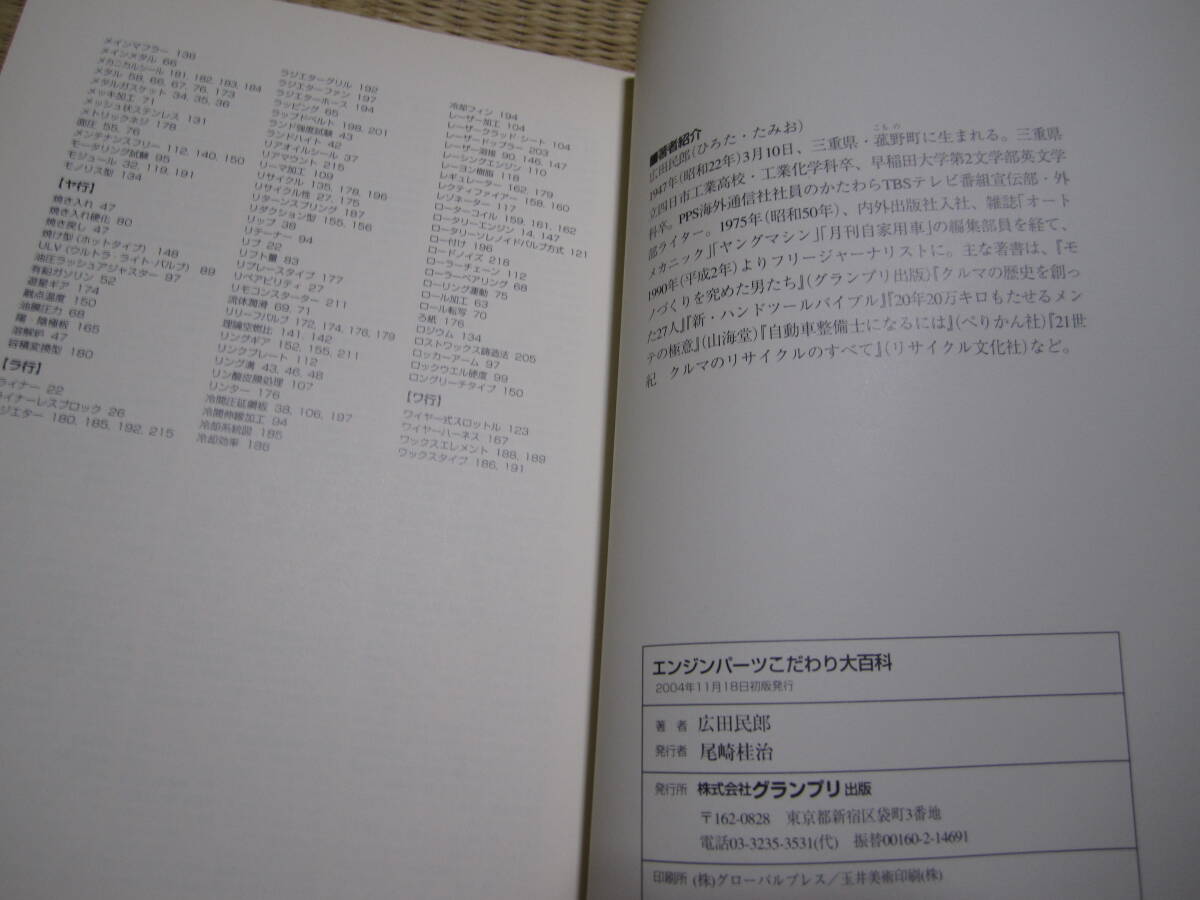 メインマフラー 138
メインメタル 66
メカニカルシール 181, 182, 183, 184
メタル 58, 66, 67, 76, 173
メタルガスケット 34, 35, 36
メッキ加工 71
メッシュ状ステンレス 131
メトリックネジ 178
面圧 55, 76
メンテナンスフリー 112, 140, 150
モータリング試験 95
モジュール 32, 119, 191
モノリス型 134
【ヤ行】
焼き入れ 47
焼き入れ硬化 80
焼き戻し 47
焼け型(ホットタイプ) 148
ULV(ウルトラ・ライト・バルブ) 89
油圧ラッシュアジャスター 97
有鉛ガソリン 52
遊星ギア 174
融点温度 150
油膜圧力 68
陽・陰極板 165
溶解炉 47
容積変換型 180
【ラ行】
ライナー 22
ライナーレスブロック 26
ラジエター 180, 185, 192, 215
ラジエターグリル 192
ラジエターファン 197
ラジエターホース 194
ラッピング 65
ラップドベルト 198, 201
ランド強度試験 43
ランドハイト 42
リアオイルシール 37
リアマウント 215
リーマ加工 109
リサイクル 135, 178, 196
リサイクル性 27, 175
リターンスプリング 187
リダクション型 155, 156
リップ 38
リテーナー 94
リブ 22
リフト量 83
リプレースタイプ 177
リペアビリティ 27
リモコンスターター 211
流体潤滑 69, 71
リリーフバルブ 172, 174, 176, 179
理論空燃比 141, 142
リングギア 152, 155, 211
リンクプレート 112
リング溝 43, 46, 48
リン酸皮膜処理 107
リンター 176
冷間圧延鋼板 38, 106, 197
冷間伸線加工 94
冷却系統図 185
冷却効率 186
冷却フィン 194
レーザー加工 104
レーザークラッド・シート 104
レーザードップラー 203
レーザー溶接 90, 146, 147
レーシングエンジン 110
レーヨン樹脂 118
レギュレーター 162, 179
レクティファイアー 158, 160
レゾネーター 117
ローターコイル 159, 161, 162
ロータリーエンジン 14, 147
ロータリーソレノイドバルブ方式 121
ロー付け 196
ロードノイズ 218
ローラーチェーン 112
ローラーベアリング 68
ローリング運動 75
ロール加工 63
ロール転写 70
ろ紙 176
ロジウム 134
ロストワックス鋳造法 205
ロッカーアーム 97
ロックウエル硬度 99
ロングリーチタイプ 150
【ワ行】
ワイヤー式スロットル 123
ワイヤーハーネス 167
ワックスエレメント 188, 189
ワックスタイプ 186, 191
■著者紹介
広田民郎(ひろた・たみお)
1947年(昭和22年)3月10日、三重県・菰野町に生まれる。三重県
立四日市工業高校・工業化学科卒、早稲田大学第2文学部英文学
科卒。PPS海外通信社社員のかたわらTBSテレビ番組宣伝部・外
部ライター。1975年(昭和50年)、内外出版社入社、雑誌「オート
メカニック」「ヤングマシン」「月刊自家用車」の編集部員を経て、
1990年(平成2年)よりフリージャーナリストに。主な著書は、『モ
ノづくりを究めた男たち』(グランプリ出版)『クルマの歴史を創っ
た27人』『新・ハンドツールバイブル』『20年20万キロもたせるメン
テの極意』(山海堂)『自動車整備士になるには』(ぺりかん社)『21世
紀 クルマのリサイクルのすべて』(リサイクル文化社)など。
エンジンパーツこだわり大百科
2004年11月18日初版発行
著者 広田民郎
発行者 尾崎桂治
発行所 株式会社グランプリ出版
〒162-0828 東京都新宿区袋町3番地
電話03-3235-3531(代) 振替00160-2-14691
印刷所 (株)グローバルプレス/玉井美術印刷(株)